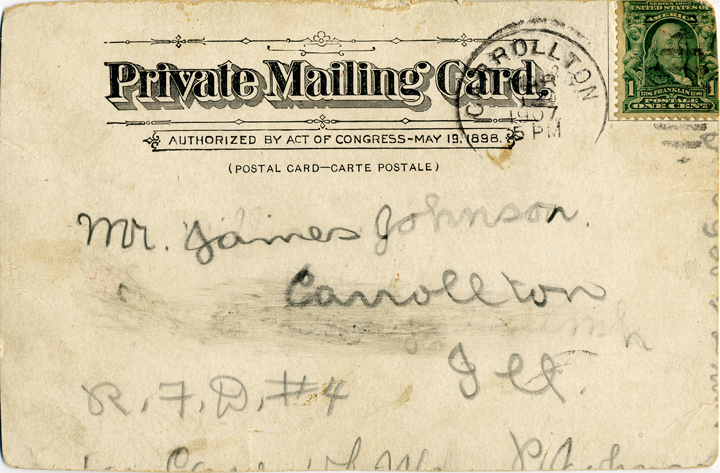 Private Mailing Card.
AUTHORIZED BY ACT OF CONGRESS-MAY 19, 1898.
(POSTAL CARD—CARTE POSTALE)
CARROLLTON
1907
5 PM
SERIES 1902
UNITED STATES OF AMERICA
1 FRANKLIN 1
POSTAGE
ONE CENT
Mr. James Johnson.
Carrollton
Ill.
R.F.D. #4